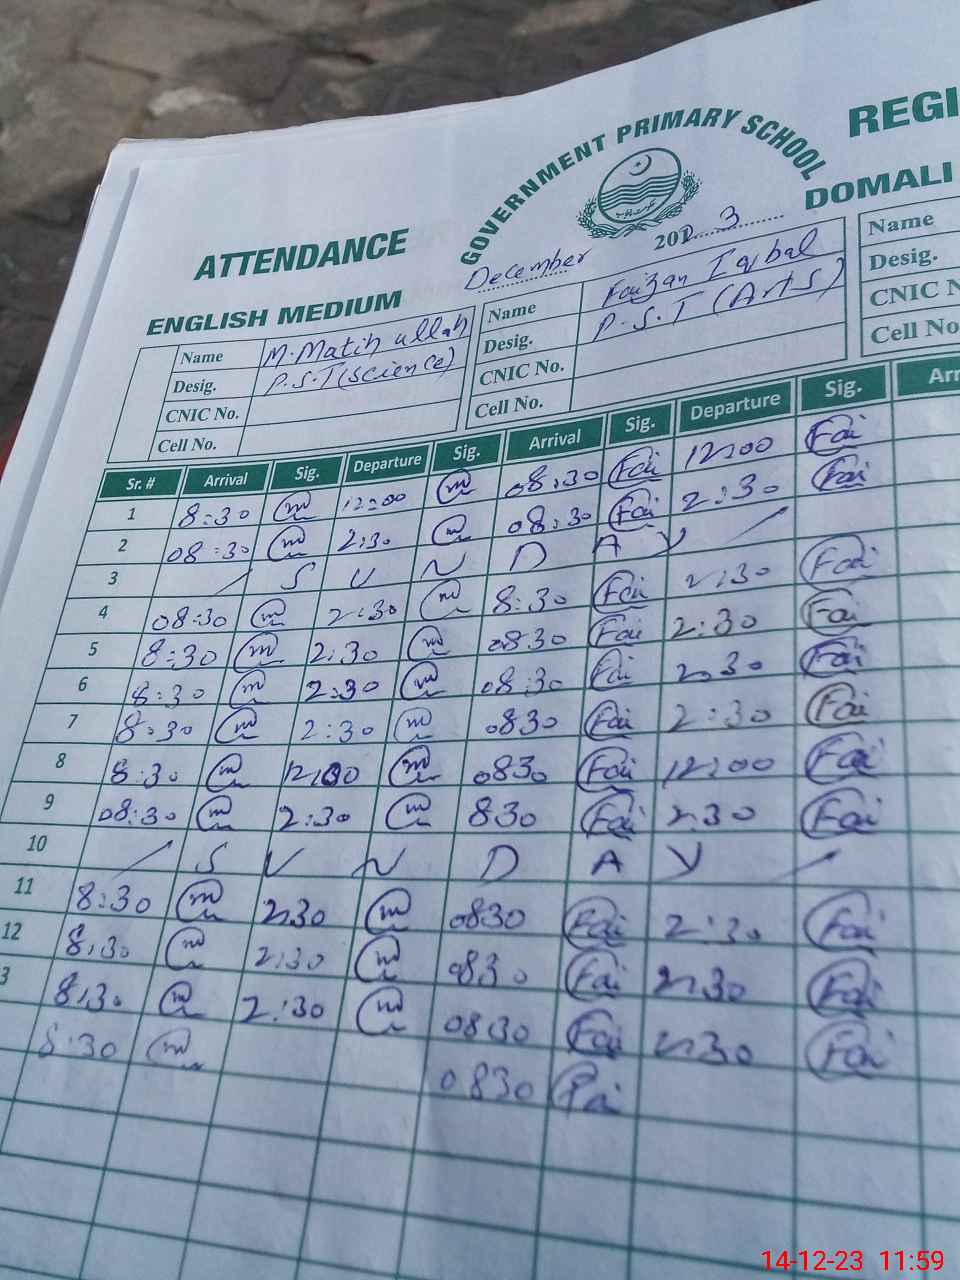 GOVERNMENT PRIMARY SCHOOL
REGI
ATTENDANCE
DOMALI
ENGLISH MEDIUM
December 2023
Name M. Matih ullah Name Faizan Iqbal Name
Desig. P.S.T (Science) Desig. P.S.T (Arts) Desig.
CNIC No. CNIC No. CNIC N
Cell No. Cell No. Cell No.
Sr. # Arrival Sig. Departure Sig. Arrival Sig. Departure Sig. Arr
1 8:30 m 12:00 m 08:30 Fai 12:00 Fai
2 08:30 m 2:30 m 08:30 Fai 2:30 Fai
3 S U N D A Y
4 08:30 m 2:30 m 8:30 Fai 2:30 Fai
5 8:30 m 2:30 m 0830 Fai 2:30 Fai
6 8:30 m 2:30 m 08:30 Fai 2:30 Fai
7 8:30 m 2:30 m 0830 Fai 2:30 Fai
8 8:30 m 12:00 m 0830 Fai 12:00 Fai
9 08:30 m 2:30 m 830 Fai 2:30 Fai
10 S U N D A Y
11 8:30 m 2:30 m 0830 Fai 2:30 Fai
12 8:30 m 2:30 m 0830 Fai 2:30 Fai
3 8:30 m 2:30 m 0830 Fai 2:30 Fai
8:30 m 0830 Fai
14-12-23 11:59